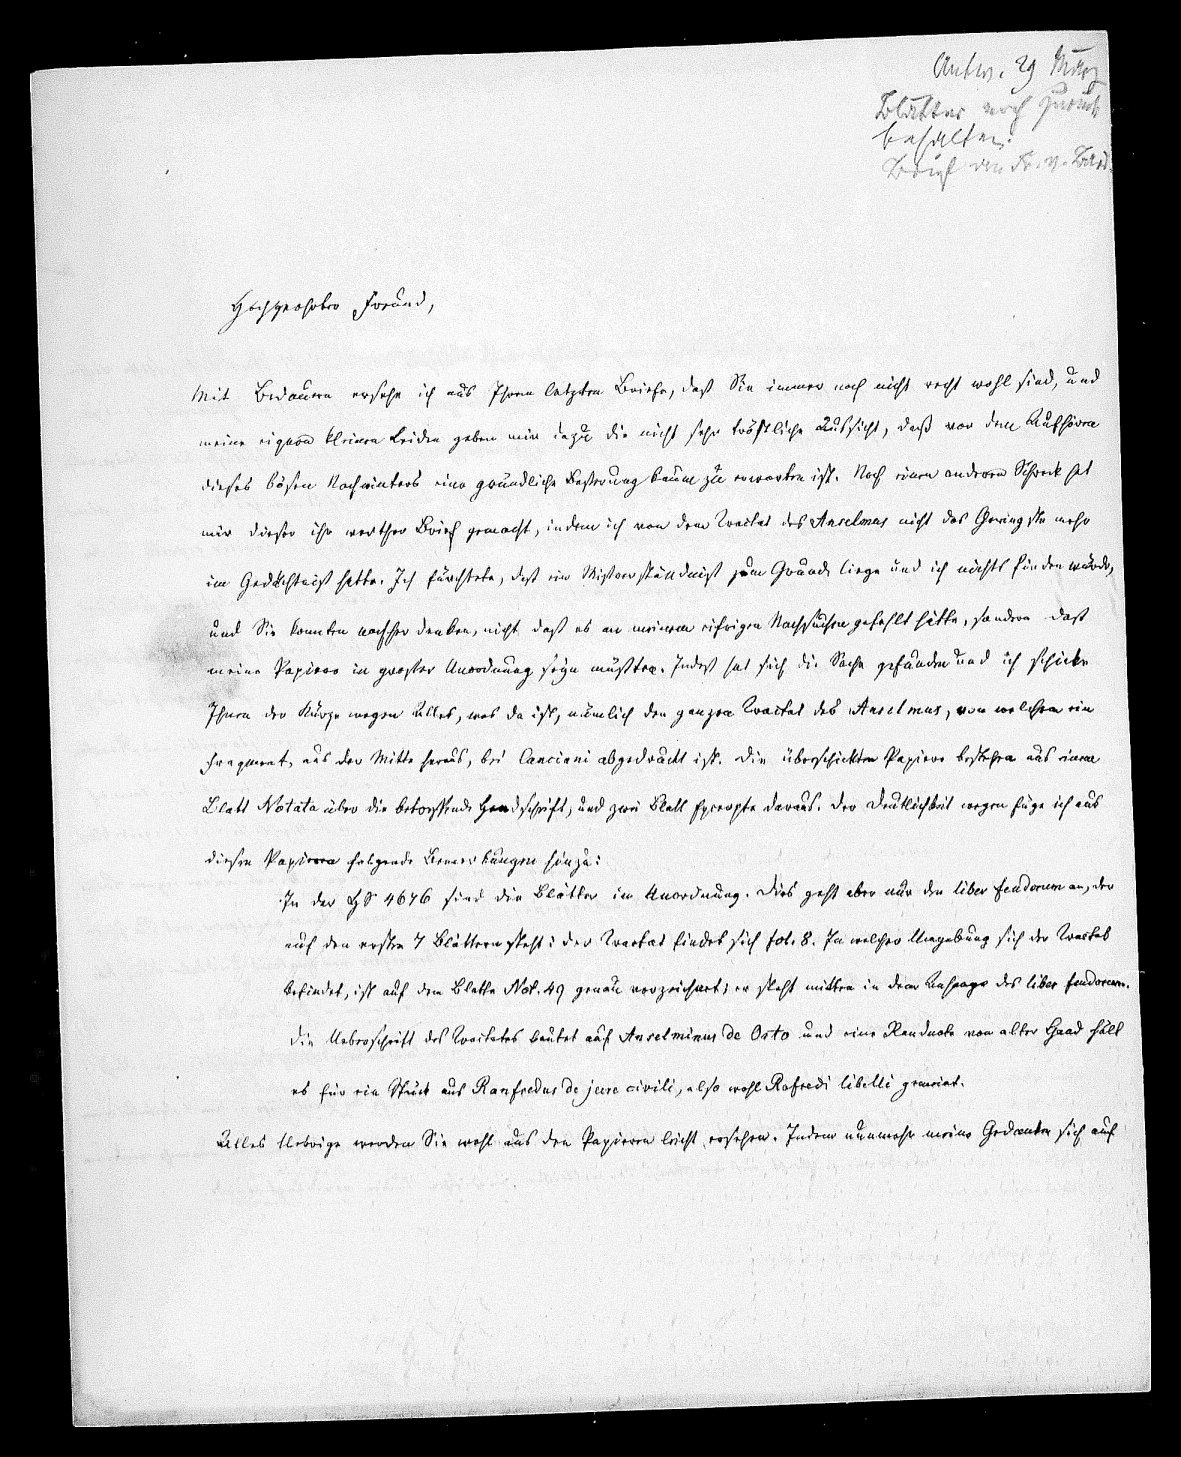 Antw. 29 März
Blätter noch zurück
behalten.
Brief von Fr. v.
Hochgeehrter Freund,
Mit Bedauern ersehe ich aus Ihrem letzten Briefe, daß Sie immer noch nicht recht wohl sind, und
meine eignen kleinen Leiden geben mir dazu die nicht sehr tröstliche Aussicht, daß vor dem Aufhören
dieses bösen Nachwinters eine gründliche Besserung kaum zu erwarten ist. Noch einen anderen Schreck hat
mir dieser ihr werther Brief gemacht, indem ich von dem Tractat des Anselmus nicht das Geringste mehr
im Gedächtniß hatte. Ich fürchtete, daß ein Mißverständniß zum Grunde liege und ich nichts finden würde,
und Sie konnten nachher denken, nicht daß es an meinem eifrigen Nachsuchen gefehlt hätte, sondern daß
meine Papiere in großer Unordnung seyn müßten. Indeß hat sich die Sache gefunden und ich schicke
Ihnen der Kürze wegen Alles, was da ist, nämlich den ganzen Tractat des Anselmus, von welchem ein
Fragment, aus der Mitte heraus, bei Canciani abgedruckt ist. Die überschickten Papiere bestehen aus einem
Blatt Notata über die betreffende Handschrift, und zwei Blatt Excerpte daraus. Der Deutlichkeit wegen füge ich aus
diesen Papieren folgende Bemerkungen hinzu:
In der HS 4676 sind die Blätter in Unordnung. Dies geht aber nur den liber feudorum an, der
auf den ersten 7 Blättern steht: der Tractat findet sich fol. 8. In welcher Umgebung sich der Tractat
befindet, ist auf dem Blatte Not. 49 genau verzeichnet; er steht mitten in dem Anhange des liber feudorum.
Die Ueberschrift des Tractates lautet auf Anselminus de Orto und eine Randnote von alter Hand hält
es für ein Stück aus Ranfredus de jure civili, also wohl Rofredi libelli gemeint.
Alles Uebrige werden Sie wohl aus den Papieren leicht ersehen. Indem nunmehr meine Gedanken sich auf